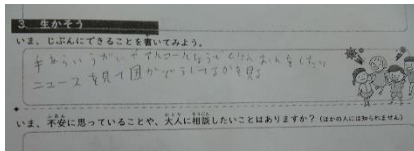 3. 生かそう
いま、じぶんにできることを書いてみよう。
手あらいうがいやアルコール
ニュースを見て国がどうしてるかを見る
いま、不安に思っていることや、大人に相談したいことはありますか？(ほかの人には知られません)